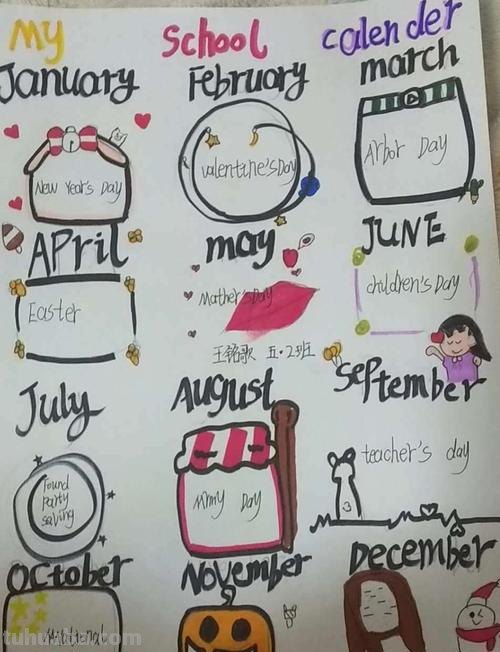 My School calender
January February march
New Year's Day
valentine's Day
Arbor Day
April may JUNE
Easter
Mather's Day
children's Day
王铭歌 五·2班
July August September
Found
Party
saving
Army Day
teacher's day
October November December
National
tuhuabao.com